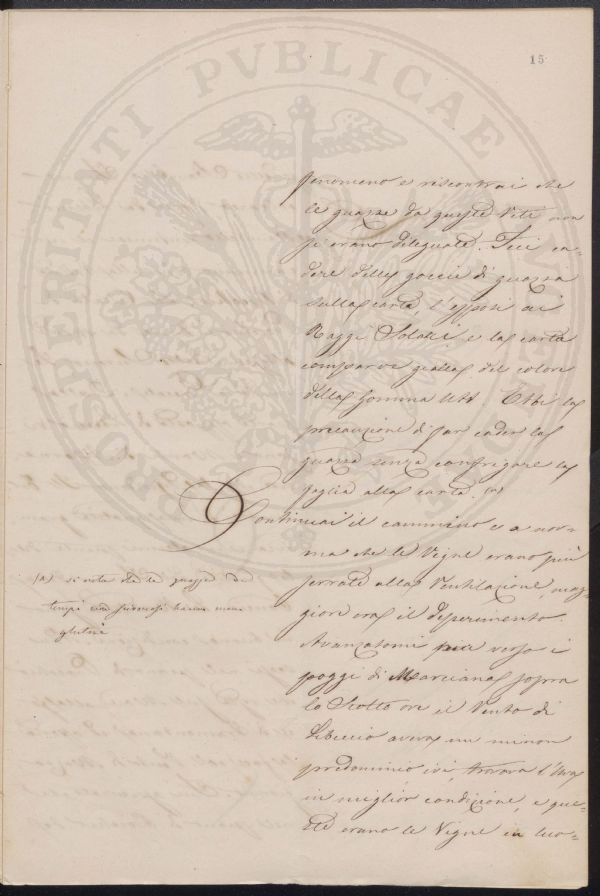 15
fenomeno e riscontrai che
le guazze da queste Viti non
si erano dileguate. Feci ca=
dere delle goccie di guazza
sulla carta, l'esposi ai
Raggi Solari e la carta
comparve gialla del colore
della Gomma Ubt. Ebbi la
precauzione di far cader la
guazza senza confrigare la
foglia alla carta. (a)
Continuai il cammino e a nor=
ma che le Vigne erano più
serrate alla Ventilazione, mag=
giore era il deperimento.
Avanzatomi più verso i
poggi di Marciana sopra
lo Scotto ove il Vento di
Libeccio aveva un minor
predominio ivi, trovava l'Uva
in miglior condizione, e que=
ste erano le Vigne in luo=
(a) si nota che le guazze dei
tempi non hanno meno
glutine
PROSPERITATI PVBLICAE